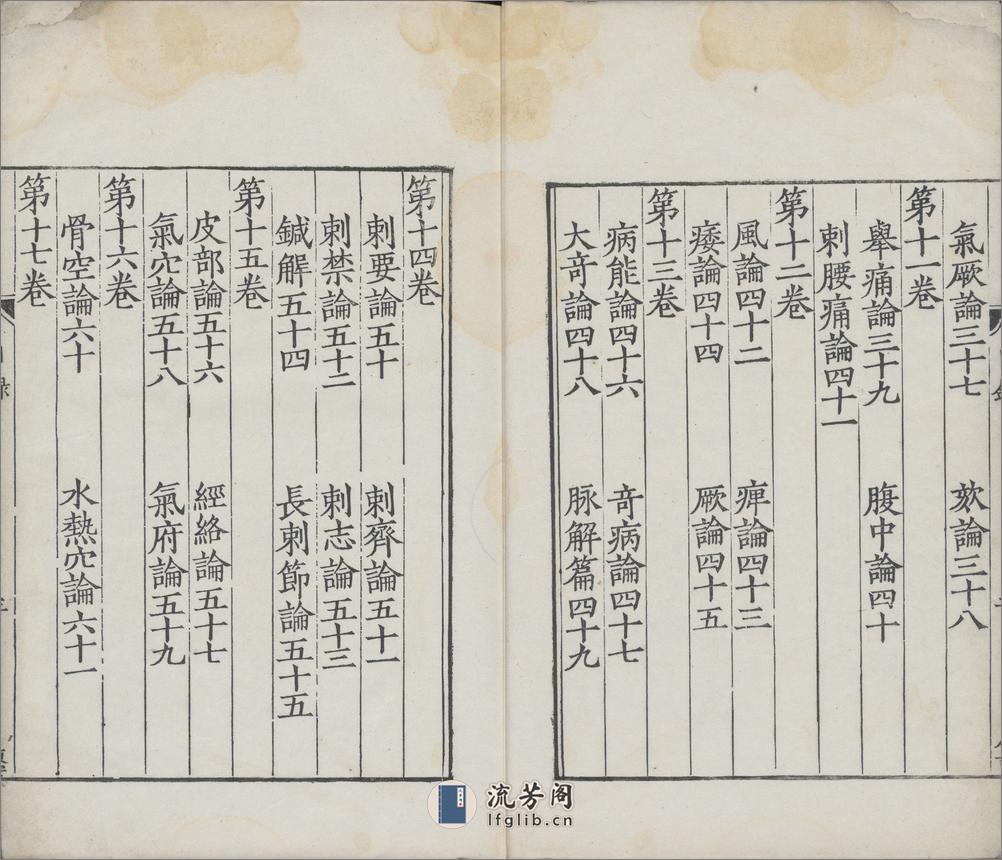 氣厥論三十七　欬論三十八
第十一卷
舉痛論三十九　腹中論四十
刺腰痛論四十一
第十二卷
風論四十二　痺論四十三
痿論四十四　厥論四十五
第十三卷
病能論四十六　竒病論四十七
大竒論四十八　脉解篇四十九
第十四卷
刺要論五十　刺齊論五十一
刺禁論五十二　刺志論五十三
鍼解五十四　長刺節論五十五
第十五卷
皮部論五十六　經絡論五十七
氣穴論五十八　氣府論五十九
第十六卷
骨空論六十　水熱穴論六十一
第十七卷
流芳阁
lfglib.cn